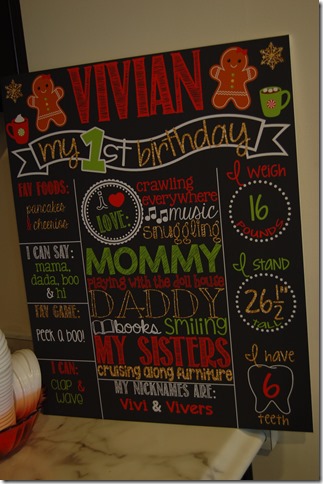 VIVIAN
my 1st birthday
FAV FOODS:
pancakes
& cheerios
I CAN SAY:
mama,
dada, boo
& hi
FAV GAME:
Peek a boo!
I CAN:
clap &
wave
I
LOVE:
crawling
everywhere
music
snuggling
MOMMY
playing with the doll house
DADDY
books smiling
MY SISTERS
cruising along furniture
MY NICKNAMES ARE:
Vivi & Vivers
I WEIGH
16
POUNDS
I STAND
26 1/2"
TALL
I have
6
teeth